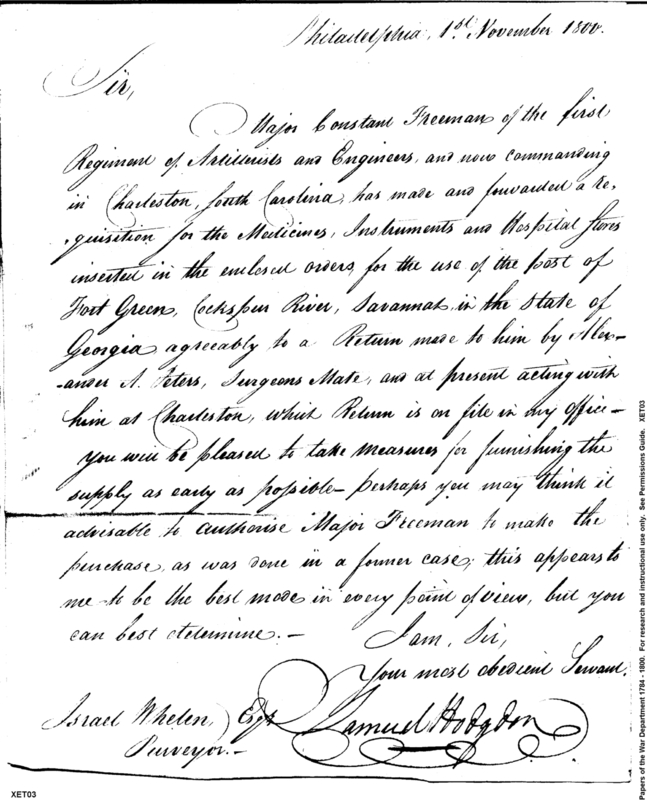 Philadelphia, 1st November 1800.
Sir,
Major Constant Freeman of the first
Regiment of Artillerists and Engineers, and now commanding
in Charleston, South Carolina, has made and forwarded a re-
-quisition for the Medicines, Instruments and Hospital Stores
inserted in the enclosed orders, for the use of the post of
Fort Green, Cockspur River, Savannah, in the State of
Georgia agreeably to a Return made to him by Alex-
-ander A. Peters, Surgeons Mate, and at present acting with
him at Charleston, which Return is on file in my office —
you will be pleased to take measures for furnishing the
supply as early as possible — perhaps you may think it
advisable to authorise Major Freeman to make the
purchase, as was done in a former case; this appears to
me to be the best mode in every point of view, but you
can best determine. —
I am, Sir,
Your most obedient Servant.
Samuel Hodgdon
Israel Whelen, Esqr
Purveyor. —
XET03
Papers of the War Department 1784 - 1800. For research and instructional use only. See Permissions Guide. XET03